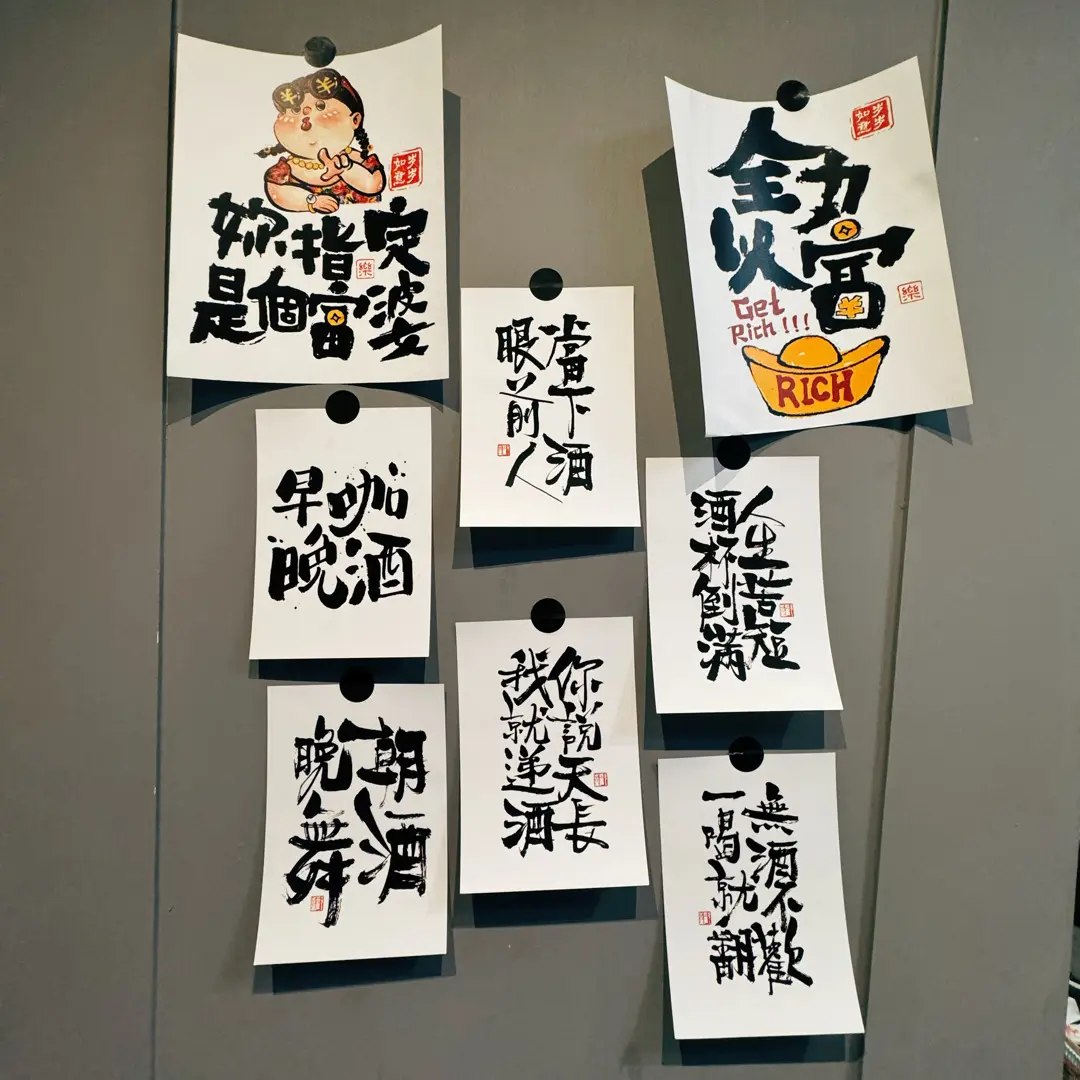 岁岁
如意
妳指定
樂
是個富婆
岁岁
如意
全力
以富
樂
Get
Rich!!!
RICH
當下酒
眼前人
早咖
晚酒
人生苦短
酒杯倒满
朝酒
晚舞
你說天長
我就递酒
無酒不歡
一喝就翻